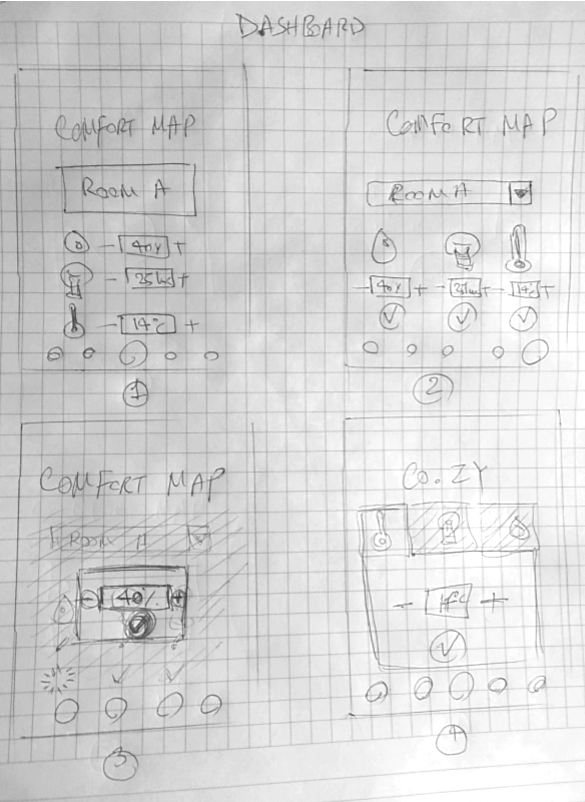 DASHBOARD
COMFORT MAP
ROOM A
- 40% +
- 25 lux +
- 14°C +
1
COMFORT MAP
ROOM A
- 40% + - 25lux + - 14°C +
2
COMFORT MAP
ROOM A
- 40% +
3
CO.ZY
- +
4